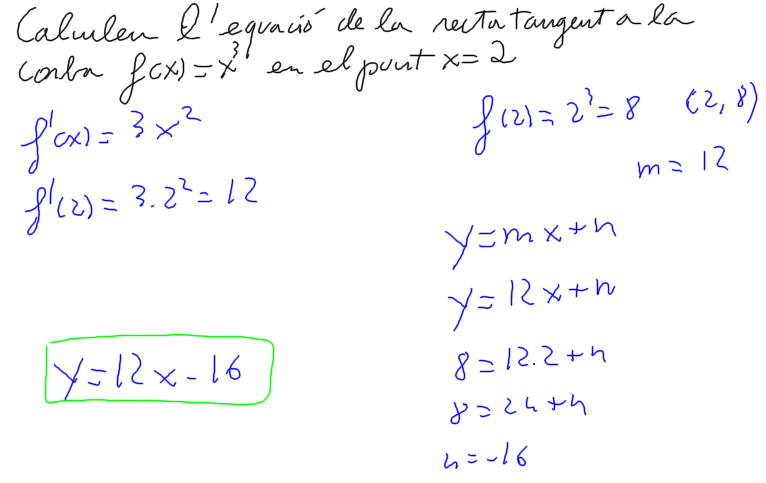 Calculeu l'equació de la recta tangent a la
corba f(x) = x³ en el punt x = 2
f'(x) = 3x²
f'(2) = 3.2² = 12
f(2) = 2³ = 8 (2, 8)
m = 12
y = mx + n
y = 12x + n
8 = 12.2 + n
8 = 24 + n
n = -16
y = 12x - 16